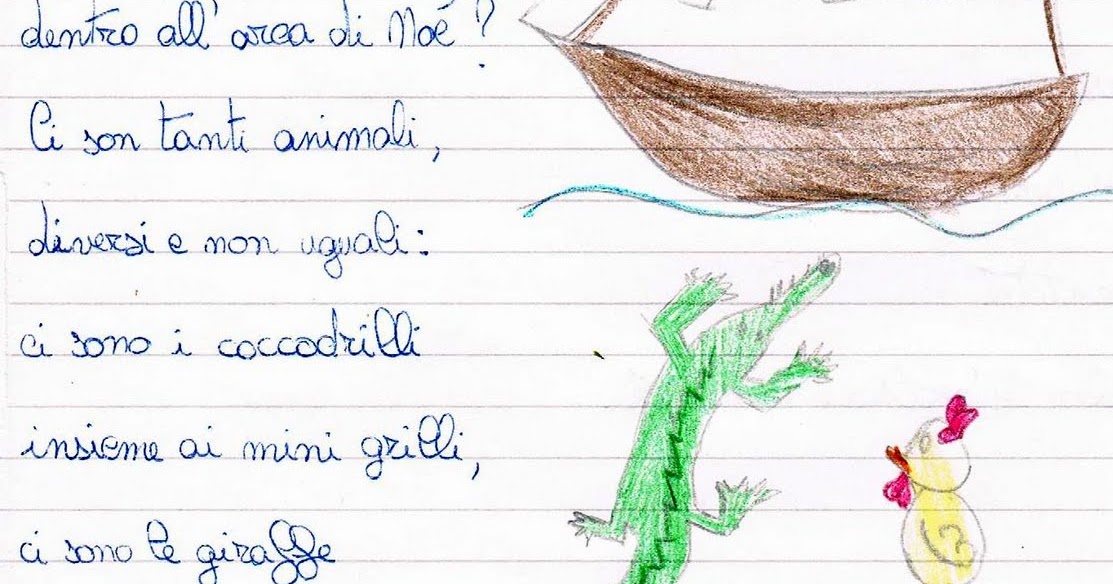 dentro all'arca di Noé?
Ci son tanti animali,
diversi e non uguali:
ci sono i coccodrilli
insieme ai mini grilli,
ci sono le giraffe